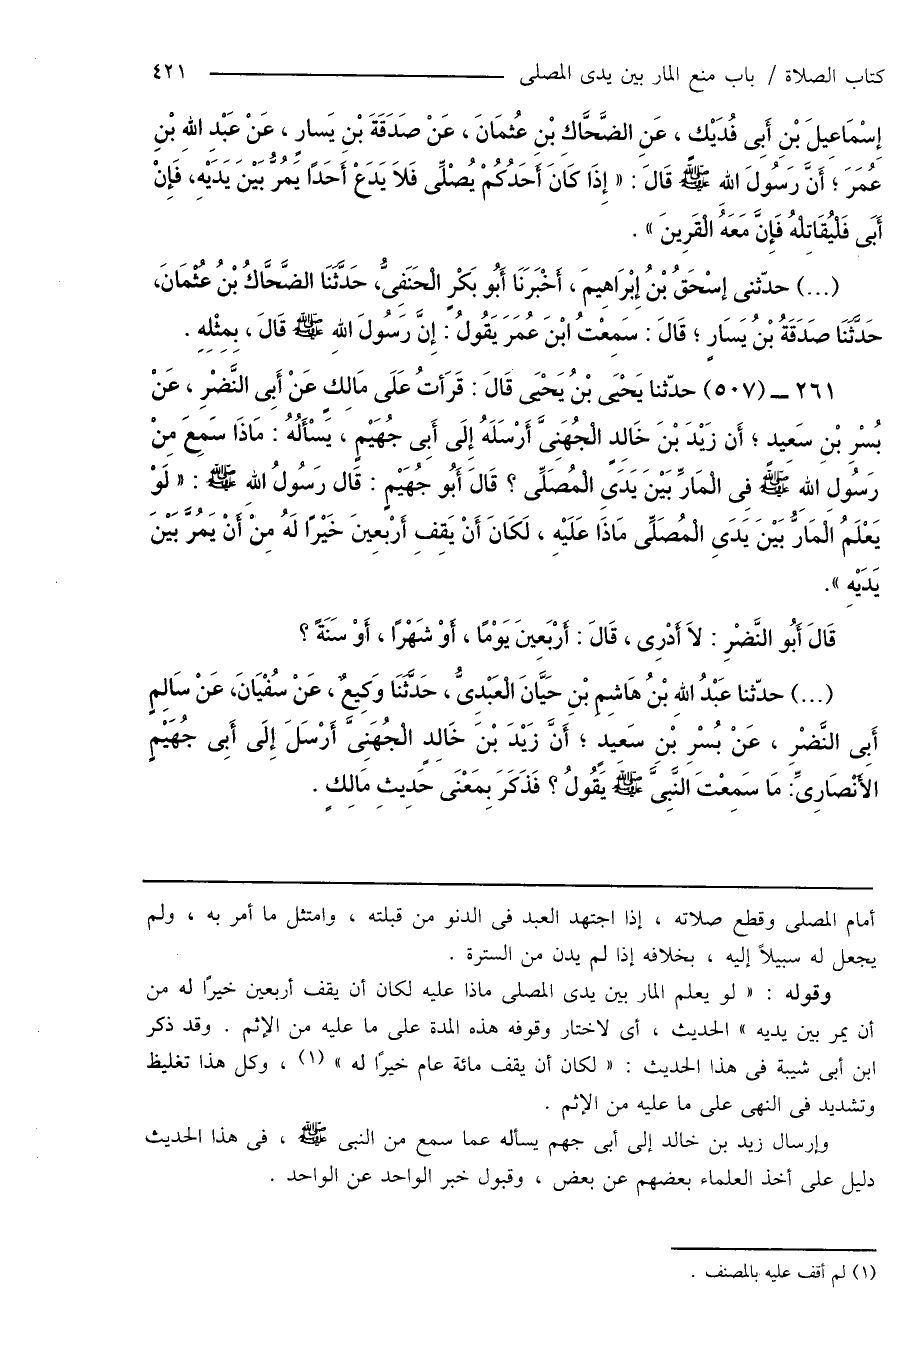 كتاب الصلاة / باب منع المار بين يدى المصلى ٤٢١
إِسْمَاعِيلَ بْنِ أَبِى فُدَيْكٍ ، عَنِ الضَّحَّاكِ بْنِ عُثْمَانَ ، عَنْ صَدَقَةَ بْنِ يَسَارٍ ، عَنْ عَبْدِ اللهِ بْنِ
عُمَرَ ؛ أَنَّ رَسُولَ اللهِ ﷺ قَالَ : « إِذَا كَانَ أَحَدُكُمْ يُصَلِّى فَلاَ يَدَعْ أَحَدًا يَمُرُّ بَيْنَ يَدَيْهِ، فَإِنْ
أَبَى فَلْيُقَاتِلْهُ فَإِنَّ مَعَهُ الْقَرِينَ » .
(...) حدّثنى إِسْحَقُ بْنُ إِبْرَاهِيمَ ، أَخْبَرَنَا أَبُو بَكْرٍ الْحَنَفِىُّ، حَدَّثَنَا الضَّحَّاكُ بْنُ عُثْمَانَ،
حَدَّثَنَا صَدَقَةُ بْنُ يَسَارٍ ؛ قَالَ : سَمِعْتُ ابْنَ عُمَرَ يَقُولُ : إِنَّ رَسُولَ اللهِ ﷺ قَالَ ، بِمِثْلِهِ .
٢٦١ ـ (٥٠٧) حدّثنا يَحْيَى بْنُ يَحْيَى قَالَ : قَرَأتُ عَلَى مَالِكٍ عَنْ أَبِى النَّضْرِ ، عَنْ
بُسْرِ بْنِ سَعِيدٍ ؛ أَن زَيْدَ بْنَ خَالِدٍ الْجُهَنِىَّ أَرْسَلَهُ إِلَى أَبِى جُهَيْمٍ ، يَسْأَلُهُ : مَاذَا سَمِعَ مِنْ
رَسُولِ اللهِ ﷺ فِى الْمَارِّ بَيْنَ يَدَىِ الْمُصَلِّى ؟ قَالَ أَبُو جُهَيْمٍ : قَال رَسُولُ اللهِ ﷺ : « لَوْ
يَعْلَمُ الْمَارُّ بَيْنَ يَدَىِ الْمُصَلِّى مَاذَا عَلَيْهِ ، لَكَانَ أَنْ يَقِفَ أَرْبَعِينَ خَيْرًا لَهُ مِنْ أَنْ يَمُرَّ بَيْنَ
يَدَيْهِ ».
قَالَ أَبُو النَّضْرِ : لاَ أَدْرِى ، قَالَ : أَرْبَعِينَ يَوْمًا ، أَوْ شَهْرًا ، أَوْ سَنَةً ؟
(...) حدّثنا عَبْدُ اللهِ بْنُ هَاشِمِ بْنِ حَيَّانَ الْعَبْدِىُّ ، حَدَّثَنَا وَكِيعٌ، عَنْ سُفْيَانَ، عَنْ سَالِمٍ
أَبِى النَّضْرِ ، عَنْ بُسْرِ بْنِ سَعِيدٍ ؛ أَنَّ زَيْدَ بْنَ خَالِدٍ الْجُهَنِىَّ أَرْسَلَ إِلَى أَبِى جُهَيْمٍ
الأَنْصَارِىِّ: مَا سَمِعْتَ النَّبِىَّ ﷺ يَقُولُ ؟ فَذَكَرَ بِمَعْنَى حَدِيثِ مَالِكٍ .
أمام المصلى وقطع صلاته ، إذا اجتهد العبد فى الدنو من قبلته ، وامتثل ما أمر به ، ولم
يجعل له سبيلاً إليه ، بخلافه إذا لم يدن من السترة .
وقوله : « لو يعلم المار بين يدى المصلى ماذا عليه لكان أن يقف أربعين خيرًا له من
أن يمر بين يديه » الحديث ، أى لاختار وقوفه هذه المدة على ما عليه من الإثم . وقد ذكر
ابن أبى شيبة فى هذا الحديث : « لكان أن يقف مائة عام خيرًا له » (١) ، وكل هذا تغليظ
وتشديد فى النهى على ما عليه من الإثم .
وإرسال زيد بن خالد إلى أبى جهم يسأله عما سمع من النبى ﷺ ، فى هذا الحديث
دليل على أخذ العلماء بعضهم عن بعض ، وقبول خبر الواحد عن الواحد .
(١) لم أقف عليه بالمصنف .